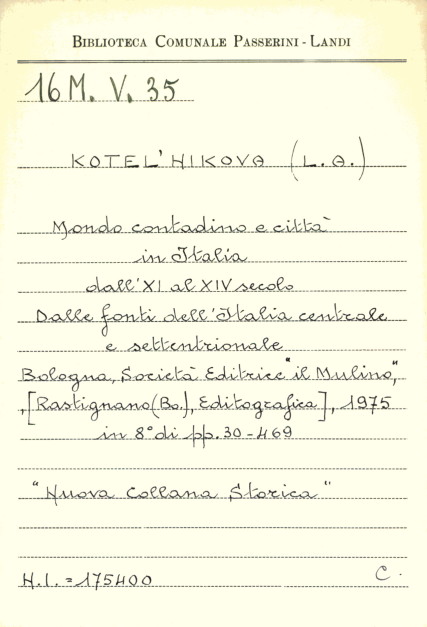 BIBLIOTECA COMUNALE PASSERINI - LANDI
16 M. V. 35
KOTEL'NIKOVA (L. A.)
Mondo contadino e città
in Italia
dall'XI al XIV secolo
Dalle fonti dell'Italia centrale
e settentrionale
Bologna, Società Editrice "il Mulino",
,[Rastignano (Bo.), Editografica], 1975
in 8° di pp. 30-469
"Nuova Collana Storica"
N.I. = 175400 C.